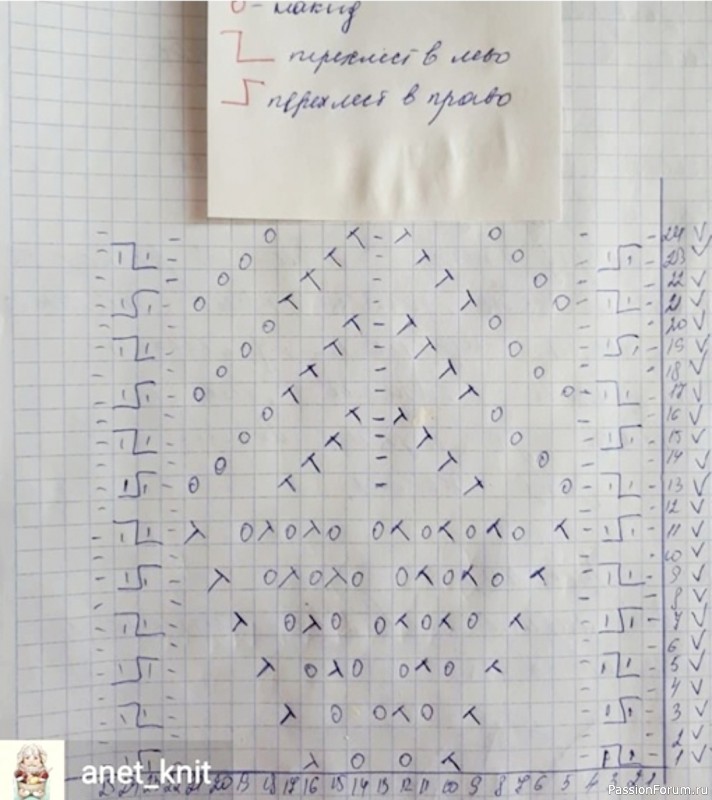 О - накид
перехлест в лево
перехлест в право
24
23
22
21
20
19
18
17
16
15
14
13
12
11
10
9
8
7
6
5
4
3
2
1
anet_knit
25 24 23 22 21 20 19 18 17 16 15 14 13 12 11 10 9 8 7 6 5 4 3 2 1
PassionForum.ru